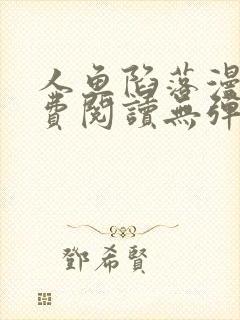 人鱼陷落漫
費閱讀無彈
鄧希賢